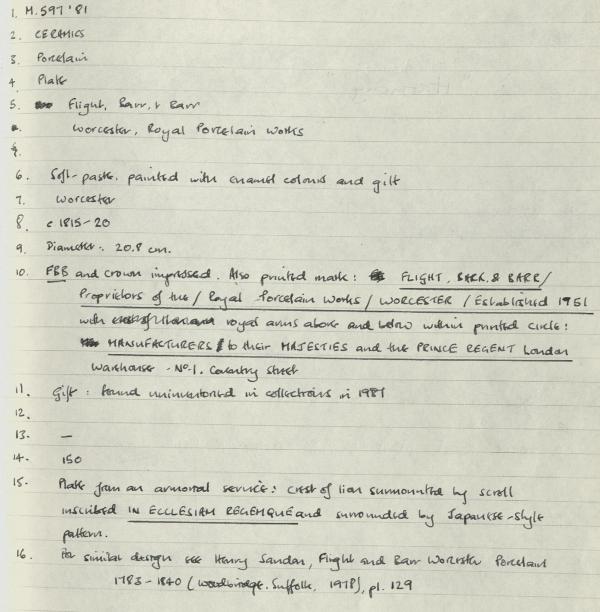 1. M.597 '81
2. CERAMICS
3. Porcelain
4. Plate
5. Flight, Barr, & Barr
Worcester, Royal Porcelain Works
6. Soft-paste. painted with enamel colours and gilt
7. Worcester
8. c 1815-20
9. Diameter: 20.8 cm.
10. FBB and crown impressed. Also printed mark: FLIGHT, BARR, & BARR/
Proprietors of the / Royal Porcelain Works / WORCESTER / Established 1751
with royal arms above and below within printed circle:
MANUFACTURERS to their MAJESTIES and the PRINCE REGENT London
Warehouse - No. 1. Coventry Street
11. Gift: found uninventoried in collections in 1981
12.
13. —
14. 150
15. Plate from an armorial service: crest of lion surmounted by scroll
inscribed IN ECCLESIAM REGEMQUE and surrounded by Japanese-style
pattern.
16. For similar design see Henry Sandon, Flight and Barr Worcester Porcelain
1783-1840 (Woodbridge, Suffolk, 1978), pl. 129